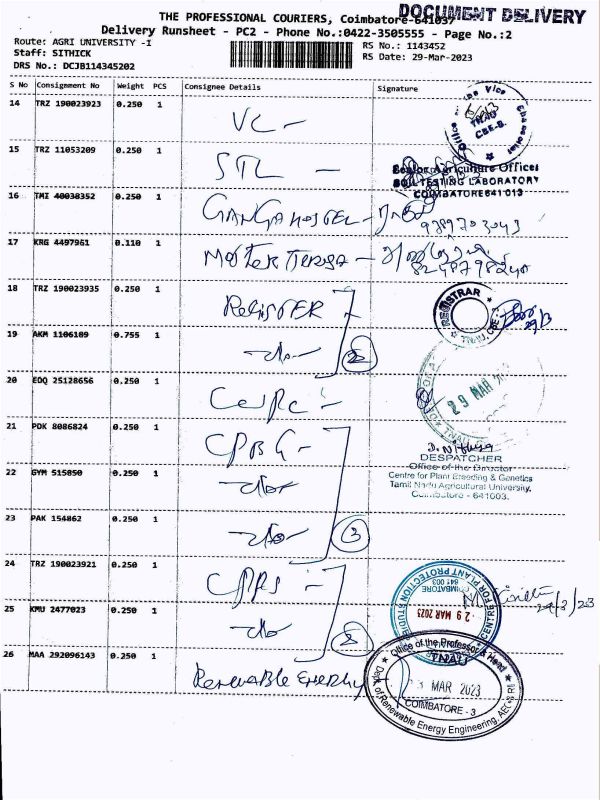 DOCUMENT DELIVERY
THE PROFESSIONAL COURIERS, Coimbatore-641037
Delivery Runsheet - PC2 - Phone No.:0422-3505555 - Page No.:2
Route: AGRI UNIVERSITY -I RS No.: 1143452
Staff: SITHICK RS Date: 29-Mar-2023
DRS No.: DCJB114345202
S No Consignment No Weight PCS Consignee Details Signature
14 TRZ 190023923 0.250 1 VC -
Office of the Vice TNAU CBE-3.
15 TRZ 11053209 0.250 1 STL -
Senior Agriculture Officer
SOIL TESTING LABORATORY
COIMBATORE 641 013
16 TMI 40038352 0.250 1 GANGA HOSTEL -
17 KRG 4497961 0.110 1
18 TRZ 190023935 0.250 1 REGISTER -
REGISTRAR TNAU, CBE-3 29/3
19 AKM 1106109 0.755 1 -do- 2
29 MAR
20 EDQ 25128656 0.250 1
21 PDK 8086824 0.250 1 CPBG -
DESPATCHER
Office of the Director
22 GYM 515850 0.250 1 -do-
Centre for Plant Breeding & Genetics
Tamil Nadu Agricultural University,
Coimbatore - 641003.
23 PAK 154862 0.250 1 -do- 3
24 TRZ 190023921 0.250 1 CPPS -
CENTRE FOR PLANT PROTECTION STUDIES
COIMBATORE 641 003
29 MAR 2023
29/3/23
25 KMU 2477023 0.250 1 -do 2
TNAU
26 MAA 292096143 0.250 1 Renewable Energy
Office of the Professor & Head
MAR 2023
COIMBATORE - 3
Dept. of Renewable Energy Engineering, AEC & RI